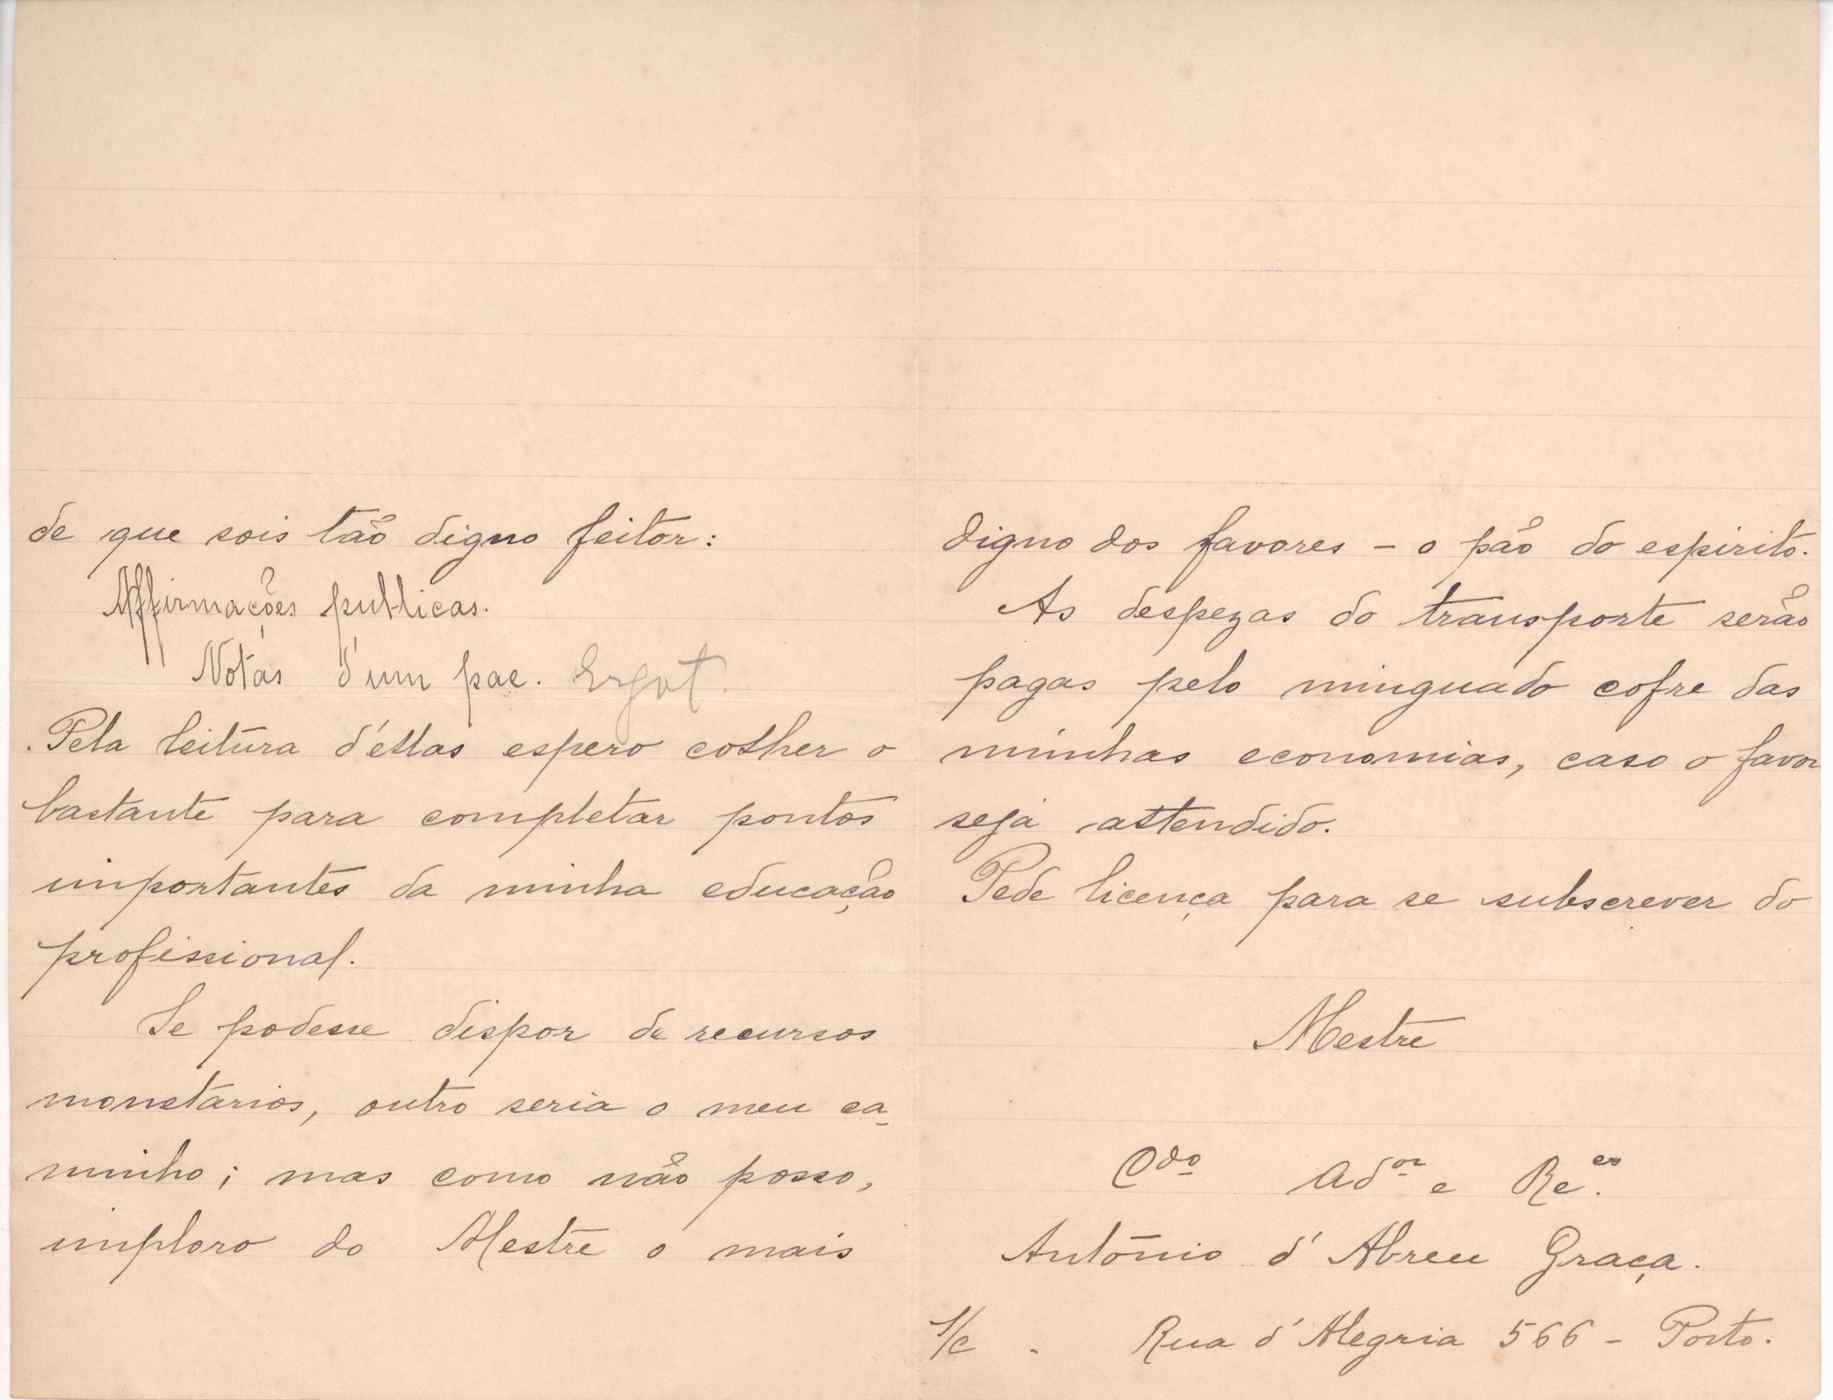 de que sois tão digno feitor:
Affirmações publicas.
Notas d'um pae. Esgot.
Pela leitura d'éllas espero colher o
bastante para completar pontos
importantes da minha educação
profissional.
Se podesse dispor de recursos
monetarios, outro seria o meu ca-
minho; mas como não posso,
imploro do Mestre o mais
digno dos favores - o pão do espirito.
As despezas do transporte serão
pagas pelo minguado cofre das
minhas economias, caso o favor
seja attendido.
Pede licença para se subscrever do
Mestre
Cdo Ador e
António d'Abreu Graça.
S/c - Rua d'Alegria 566 - Porto.